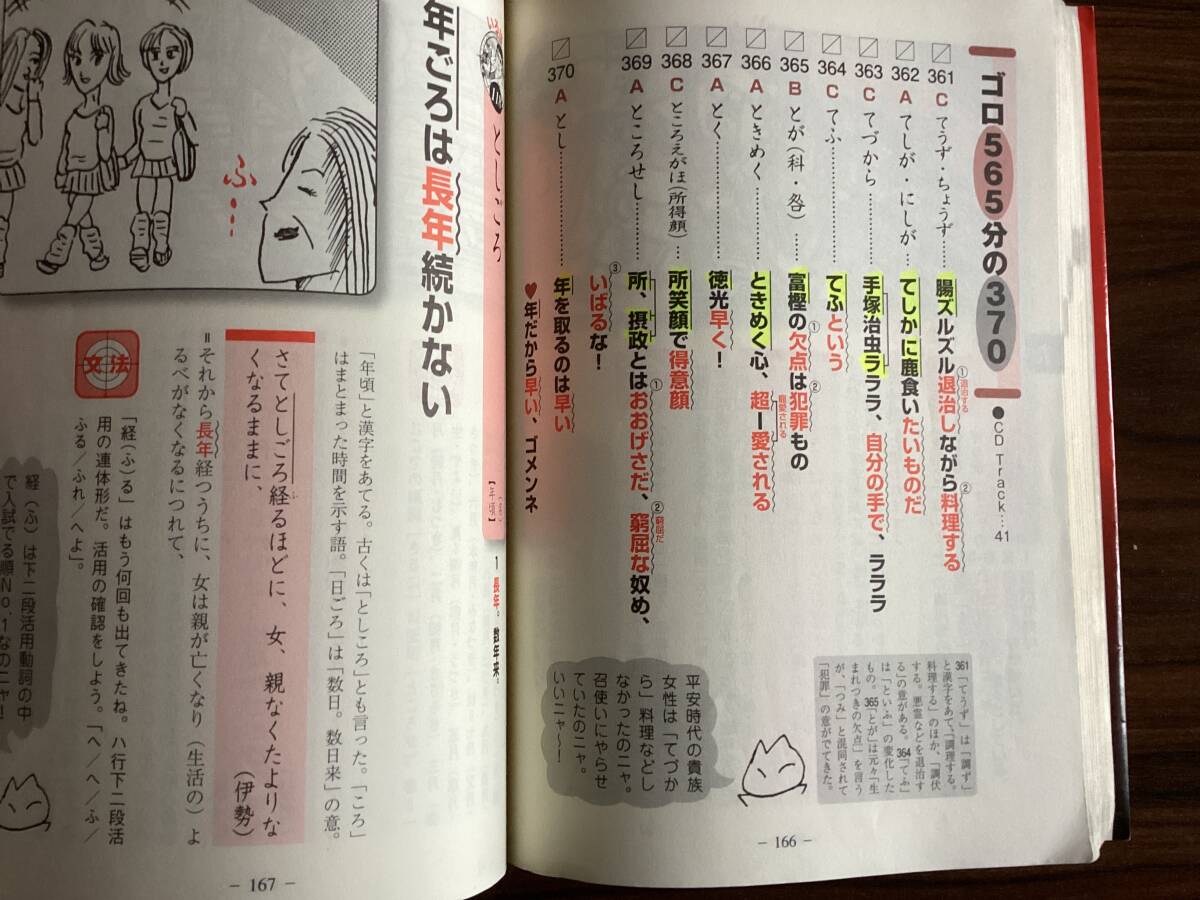 ゴロ565分の370
●CD Track…41
361 C てうず・ちょうず……
腸ズルズル①退治しながら②料理する
退治する
362 A てしが・にしが…
てしかに鹿食いたいものだ
363 C てづから…………
手塚治虫ラララ、自分の手で、ラララ
364 C てふ………………
てふという
365 B とが(科・咎)……
富樫の①欠点は②犯罪もの
366 A ときめく…………
ときめく心、超ー愛される
寵愛される
367 A とく………………
徳光早く!
368 C ところえがほ(所得顔)…
所笑顔で得意顔
369 A ところせし………
所、摂政とは①おおげさだ、②窮屈な奴め、
窮屈だ
③いばるな!
370 A とし………………
年を取るのは早い
♥年だから早い、ゴメンネ
361「てうず」は「調ず」
と漢字をあて、「調理する。
料理する」のほか、「調伏
する。悪霊などを退治す
る」の意がある。364「てふ」
は「といふ」の変化した
もの。365「とが」は元々「生
まれつきの欠点」を言う
が、「つみ」と混同されて
「犯罪」の意がでてきた。
平安時代の貴族
女性は「てづか
ら」料理などし
なかったのニャ。
召使いにやらせ
ていたのニャ。
いいニャ〜!
− 166 −
としごろ
【年頃】
(名)
1 長年。数年来。
年ごろは長年続かない
ふ…
「年頃」と漢字をあてる。古くは「としころ」とも言った。「ころ」
はまとまった時間を示す語。「日ごろ」は「数日。数日来」の意。
さてとしごろ経るほどに、女、親なくたよりな
ふ
くなるままに、
(伊勢)
=それから長年経つうちに、女は親が亡くなり(生活の)よ
るべがなくなるにつれて、
文法
「経(ふ)る」はもう何回も出てきたね。ハ行下二段活
用の連体形だ。活用の確認をしよう。「へ/へ/ふ/
ふる/ふれ/へよ」。
経(ふ)は下二段活用動詞の中
で入試でる順No.1なのニャ!
− 167 −